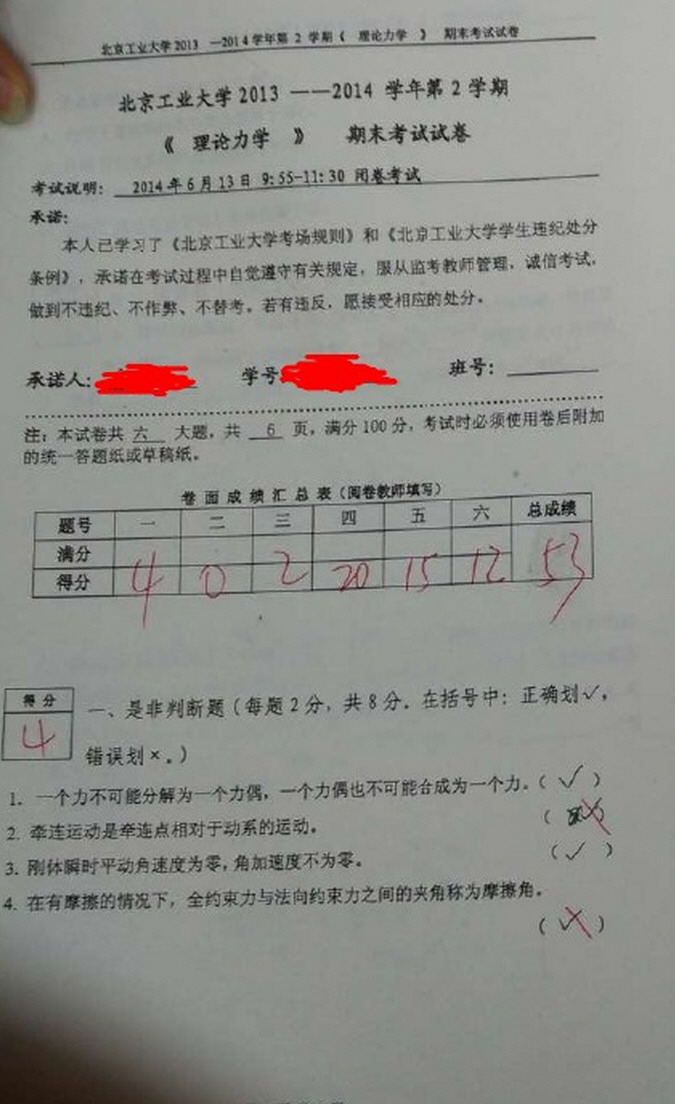 北京工业大学2013 —2014学年第 2 学期《 理论力学 》 期末考试试卷
北京工业大学2013 ——2014 学年第2学期
《 理论力学 》 期末考试试卷
考试说明: 2014年6月13日 9:55-11:30 闭卷考试
承诺:
本人已学习了《北京工业大学考场规则》和《北京工业大学学生违纪处分
条例》,承诺在考试过程中自觉遵守有关规定,服从监考教师管理,诚信考试,
做到不违纪、不作弊、不替考。若有违反,愿接受相应的处分。
承诺人: 学号 班号:
注:本试卷共 六 大题,共 6 页,满分100分,考试时必须使用卷后附加
的统一答题纸或草稿纸。
卷 面 成 绩 汇 总 表(阅卷教师填写)
题号 一 二 三 四 五 六 总成绩
满分
得分 4 0 2 20 15 12 53
得 分
4
一、是非判断题(每题2分,共8分。在括号中:正确划√,
错误划×。)
1. 一个力不可能分解为一个力偶,一个力偶也不可能合成为一个力。( √ )
2. 牵连运动是牵连点相对于动系的运动。 ( √ )
3. 刚体瞬时平动角速度为零,角加速度不为零。 ( √ )
4. 在有摩擦的情况下,全约束力与法向约束力之间的夹角称为摩擦角。
( √ )